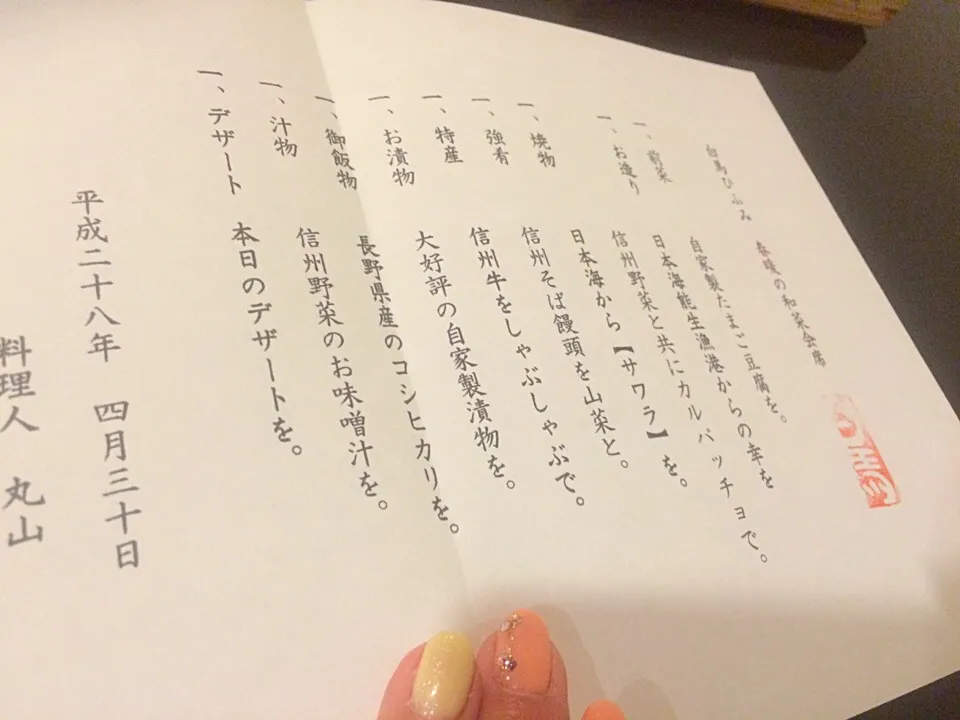 白馬ひふみ 春暖の和菜会席
一、前菜 自家製たまご豆腐を。
一、お造り 日本海能生漁港からの幸を
信州野菜と共にカルパッチョで。
一、焼物 日本海から【サワラ】を。
一、強肴 信州そば饅頭を山菜と。
一、特産 信州牛をしゃぶしゃぶで。
一、お漬物 大好評の自家製漬物を。
一、御飯物 長野県産のコシヒカリを。
一、汁物 信州野菜のお味噌汁を。
一、デザート 本日のデザートを。
平成二十八年 四月三十日
料理人 丸山